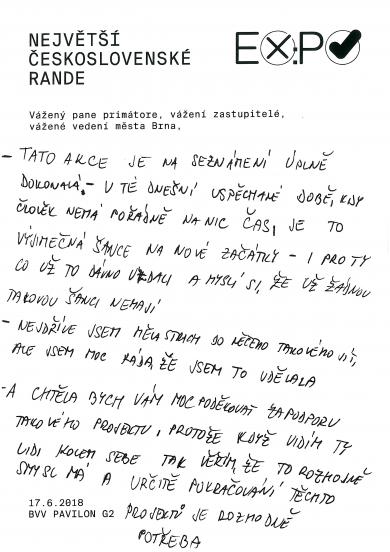 NEJVĚTŠÍ
ČESKOSLOVENSKÉ
RANDE
EX:PO
Vážený pane primátore, vážení zastupitelé,
vážené vedení města Brna,
- TATO AKCE JE NA SEZNÁMENÍ ÚPLNĚ
DOKONALÁ, - V TÉ DNEŠNÍ USPĚCHANÉ DOBĚ, KDY
ČLOVĚK NEMÁ POŘÁDNĚ NA NIC ČAS, JE TO
VÝJIMEČNÁ ŠANCE NA NOVÉ ZAČÁTKY - I PRO TY
CO UŽ TO DÁVNO VZDALI A MYSLÍ SI, ŽE UŽ ŽÁDNOU
TAKOVOU ŠANCI NEMAJÍ
- NEJDŘÍVE JSEM MĚLA STRACH DO NĚČEHO TAKOVÉHO JÍT,
ALE JSEM MOC RÁDA, ŽE JSEM TO UDĚLALA
- A CHTĚLA BYCH VÁM MOC PODĚKOVAT ZA PODPORU
TAKOVÉHO PROJEKTU, PROTOŽE KDYŽ VIDÍM TY
LIDI KOLEM SEBE TAK VĚŘÍM, ŽE TO ROZHODNĚ
SMYSL MÁ A URČITĚ POKRAČOVÁNÍ TĚCHTO
PROJEKTŮ JE ROZHODNĚ
POTŘEBA
17.6.2018
BVV PAVILON G2